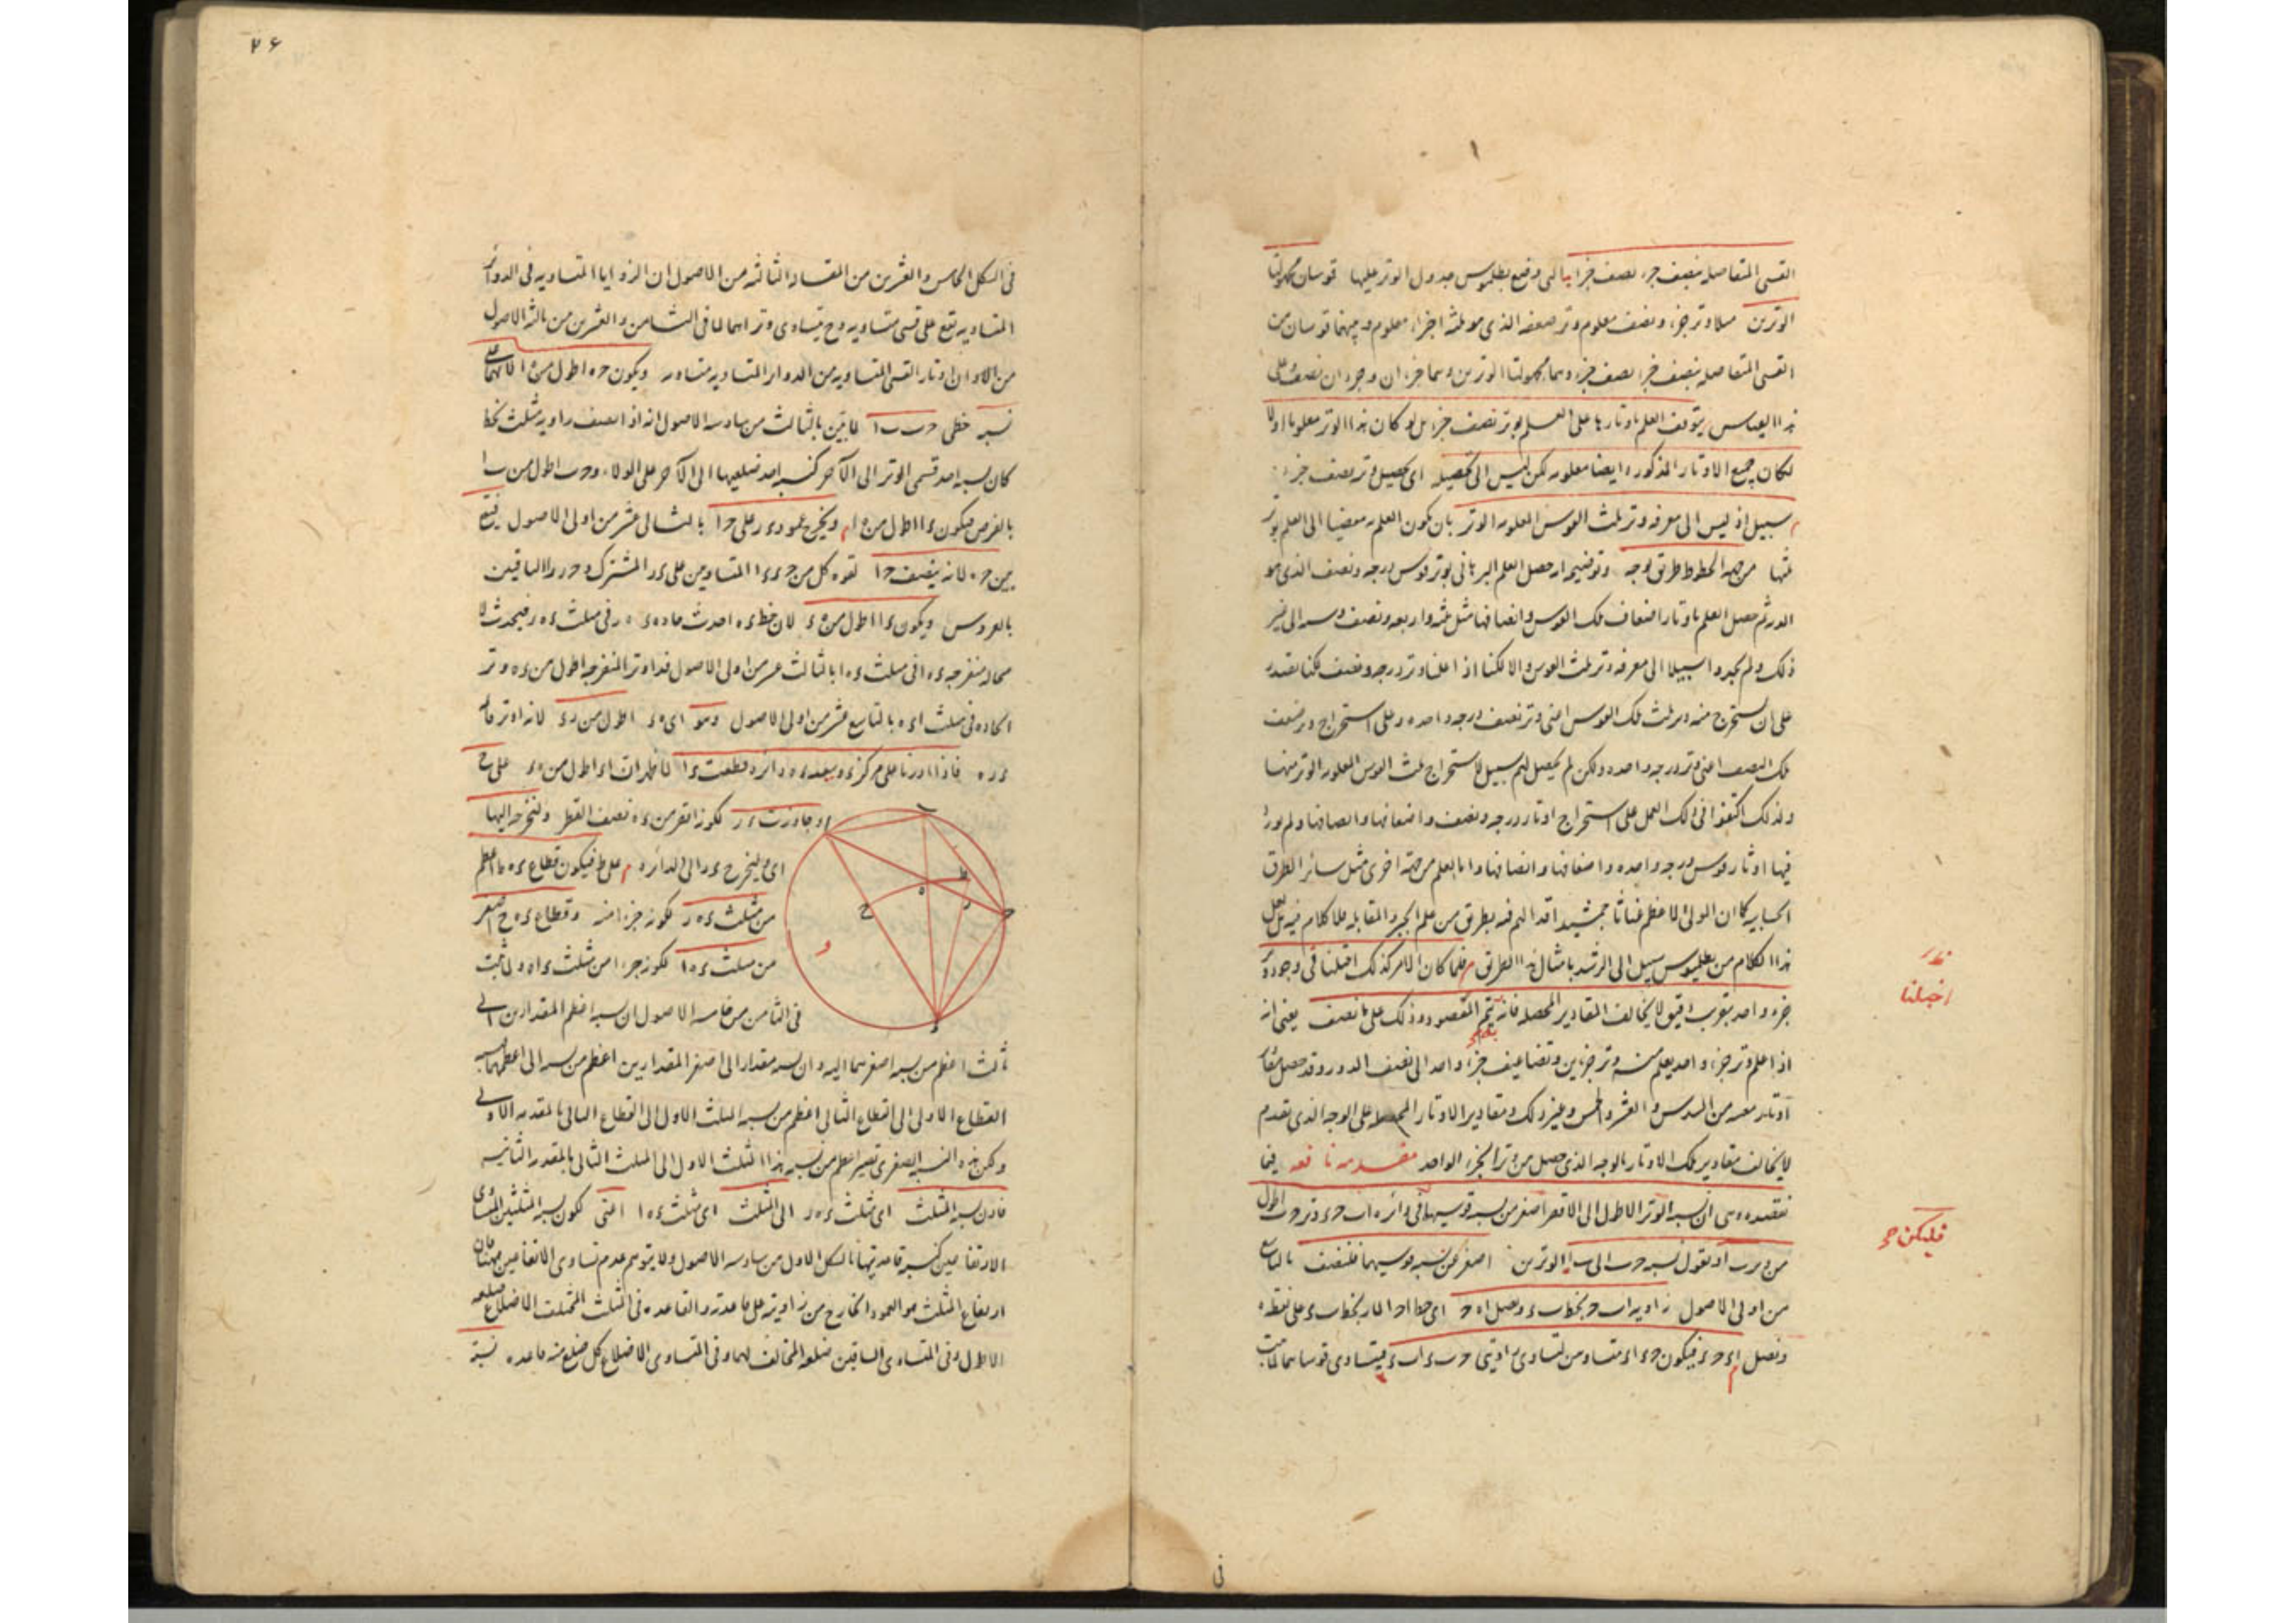 القسى المتفاضلة بنصف جزء نصف جزء التى وضع بطلميوس جدول الوتر عليها قوسان مجهولتا
الوترين مثلا وتر جزء ونصف معلوم ووتر ضعفه الذى هو ثلثة اجزاء معلوم وبينهما قوسان من
القسى المتفاضلة بنصف جزء نصف جزء وهما مجهولتا الوترين وهما جزءان وجزءان ونصف وعلى
هذا القياس يتوقف العلم باوتارها على العلم بوتر نصف جزء بل لو كان هذا الوتر معلوما اولا
لكان جميع الاوتار المذكورة ايضا معلومة لكن ليس الى تحصيله اى تحصيل وتر نصف جزء
سبيل اذ ليس الى معرفة وتر ثلث القوس المعلومة الوتر بان يكون العلم به مفضيا الى العلم بوتر
ثلثها من جهة الخطوط طريق يوجد وتوضيحه ان حصل العلم البرهانى بوتر قوس درجة ونصف الذى هو
ثم حصل العلم باوتار اضعاف تلك القوس وانصافها مثل ثلثة واربعة ونصف وستة الى غير
ذلك ولم يجدوا سبيلا الى معرفة وتر ثلث القوس والا لكنا اذا علمنا وتر درجة ونصف كنا نقتدر
على ان نستخرج منه وتر ثلث تلك القوس اعنى وتر نصف درجة واحدة وعلى استخراج وتر ضعف
تلك النصف اعنى وتر درجة واحدة ولكن لم يحصل لهم سبيل لاستخراج ثلث القوس المعلومة الوتر منها
ولذلك اكتفوا فى ذلك العمل على استخراج اوتار درجة ونصف واضعافها وانصافها ولم يوردوا
فيها اوتار قوس درجة واحدة واضعافها وانصافها واما العلم من جهة اخرى مثل سائر الطرق
الحسابية كما ان المولى الاعظم غياثا جمشيد اقدر الهم فيه بطريق من علم الجبر والمقابلة فلا كلام فيه بل لعل
هذا الكلام من بطلميوس سبيل الى الرشد بامثال هذا الطريق فلما كان الامر كذلك احتلنا فى وجود وتر
جزء واحد بتقريب دقيق لا يخالف المقادير المحصلة فانه يتم المقصود وذلك على ما نصف يعنى انه
اذا علم وتر جزء واحد يعلم منه وتر جزئين وتضاعيف جزء واحد الى نصف الدور وقد حصل مقادير
اوتار معينة من السدس والعشر والخمس وغير ذلك ومقادير الاوتار المحصلة على الوجه الذى تقدم
لا يخالف مقادير تلك الاوتار بالوجه الذى حصل من وتر الجزء الواحد مقدمة نافعة فيما
نقصده وهى ان نسبة الوتر الاطول الى الاقصر اصغر من نسبة قوسيهما فى دائرة ا ب ح ء وتر ح ب اطول
من وتر ب ا ونقول نسبة ح ب الى ب ا الوترين اصغر من نسبة قوسيهما فلننصف بالتاسع
من اولى الاصول زاوية ا ب ح بخط ب ء ونصل ا ه ح اى خط ا ح المار بخط ب ء على نقطة ه
ونصل ا ء ح ء فيكون ح ء ا ء متساويين لتساوى زاويتى ح ب ء ا ب ء فيتساوى قوساهما لما ثبت
احتلنا
فليكن ح
فى
٢٦
فى الشكل الخامس والعشرين من المقالة الثالثة من الاصول ان الزوايا المتساوية فى الدوائر
المتساوية تقع على قسى متساوية وح يتساوى وتراهما لما فى الثامن والعشرين من ثالثة الاصول
من الاوان اوتار القسى المتساوية من الدوائر المتساوية متساوية ويكون ح ه اطول من ه ا لانهما على
نسبة خطى ح ب ب ا لما تبين بالثالث من سادسة الاصول انه اذا نصف زاوية مثلث بخط
كان نسبة احد قسمى الوتر الى الآخر كنسبة احد ضلعيها الى الآخر على الولاء و ح ب اطول من ب ا
بالفرض فيكون ح ه اطول من ه ا ونخرج عمود ء ر على ح ا بالثانى عشر من اولى الاصول فيقع
بين ح ه لانه ينصف ح ا لقوة كل من ح ء ء ا المتساويين على ء ر المشترك و ح ر ر ا الباقيين
بالعروس ويكون ء ا اطول من ه ء لان خط ء ه احدث حادة ء ه ر فى مثلث ء ه ر فيحدث لا
محالة منفرجة ء ه ا فى مثلث ء ه ا بالثالث عشر من اولى الاصول فء ا وتر المنفرجة اطول من ء ه وتر
الحادة فى مثلث ا ء ه بالتاسع عشر من اولى الاصول وهو اى ه ء اطول من ر ء لانه وتر قائمة
ء ر ه فاذا ادرنا على مركز ء وببعد ء ه دائرة قطعت ء ا لما ظهر ان ا ء اطول من ه ء على ح
وجاوزت ء ر لكونه اقصر من ء ه نصف القطر ولنخرجه اليها
اى ولنخرج ء ر الى الدائرة على ط فيكون قطاع ء ه ط اعظم
من مثلث ء ه ر لكونه جزءا منه وقطاع ء ه ح اصغر
من مثلث ء ه ا لكونه جزءا من مثلث ء ا ه ولما ثبت
فى الثامن من خامسة الاصول ان نسبة اعظم المقدارين الى
ثالث اعظم من نسبة اصغرهما اليه وان نسبة مقدار الى اصغر المقدارين اعظم من نسبته الى اعظمهما فنسبة
القطاع الاول الى القطاع الثانى اعظم من نسبة المثلث الاول الى القطاع الثانى بالمقدمة الاولى
ولكن هذه النسبة الصغرى تصير اعظم من نسبة هذا المثلث الاول الى المثلث الثانى بالمقدمة الثانية
فاذن نسبة المثلث اى مثلث ء ه ر الى المثلث اى مثلث ء ه ا اعنى لكون نسبة المثلثين المتساوى
الارتفاعين كنسبة قاعدتيهما بالشكل الاول من سادسة الاصول ولا يتوهم عدم تساوى الارتفاعين ههنا فان
ارتفاع المثلث هو العمود الخارج من زاويته على قاعدته والقاعدة فى المثلث المختلف الاضلاع ضلعه
الاطول وفى المتساوى الساقين ضلعه المخالف لهما وفى المتساوى الاضلاع كل ضلع منه قاعدة نسبة